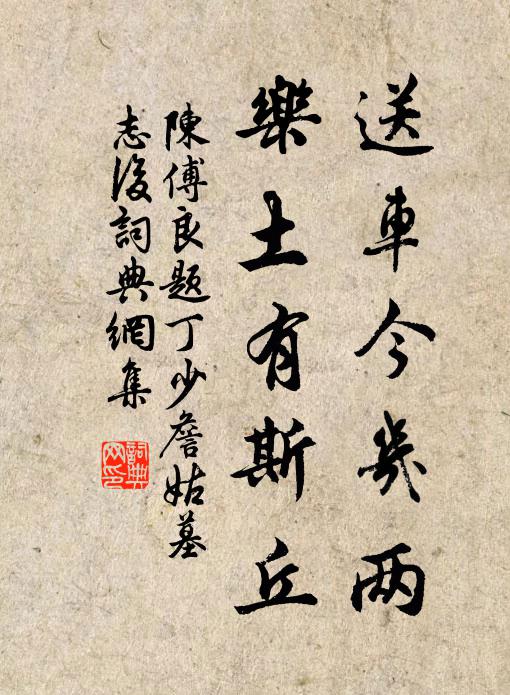 送車今幾兩
樂土有斯丘
陳傅良題丁少詹姑墓
志後詞典網集
詞典網印